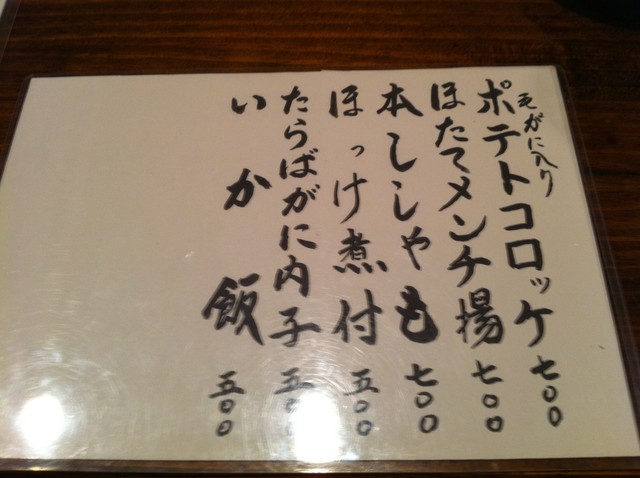 毛がに入り
ポテトコロッケ 七〇〇
ほたてメンチ揚 七〇〇
本ししゃも 七〇〇
ほっけ煮付 五〇〇
たらばがに内子 五〇〇
いか飯 五〇〇